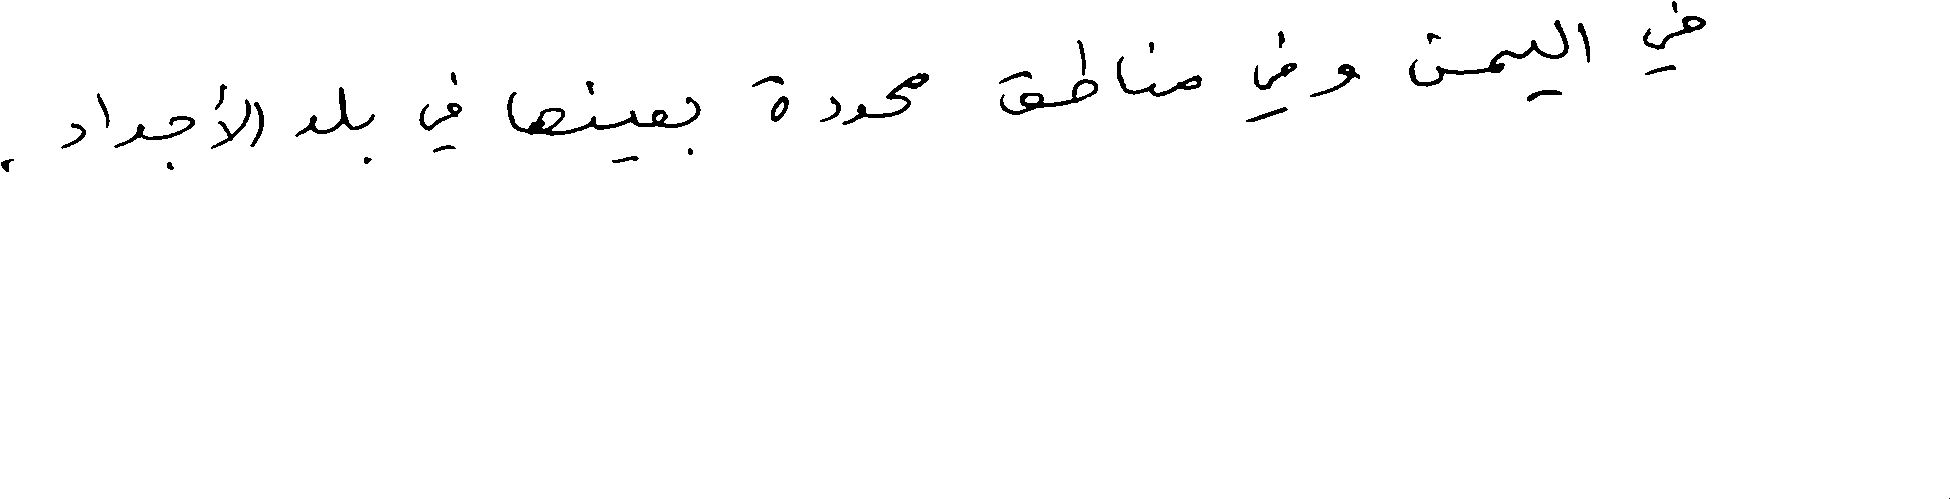 في اليمن وفي مناطق محددة بعينها في بلد الأجداد .